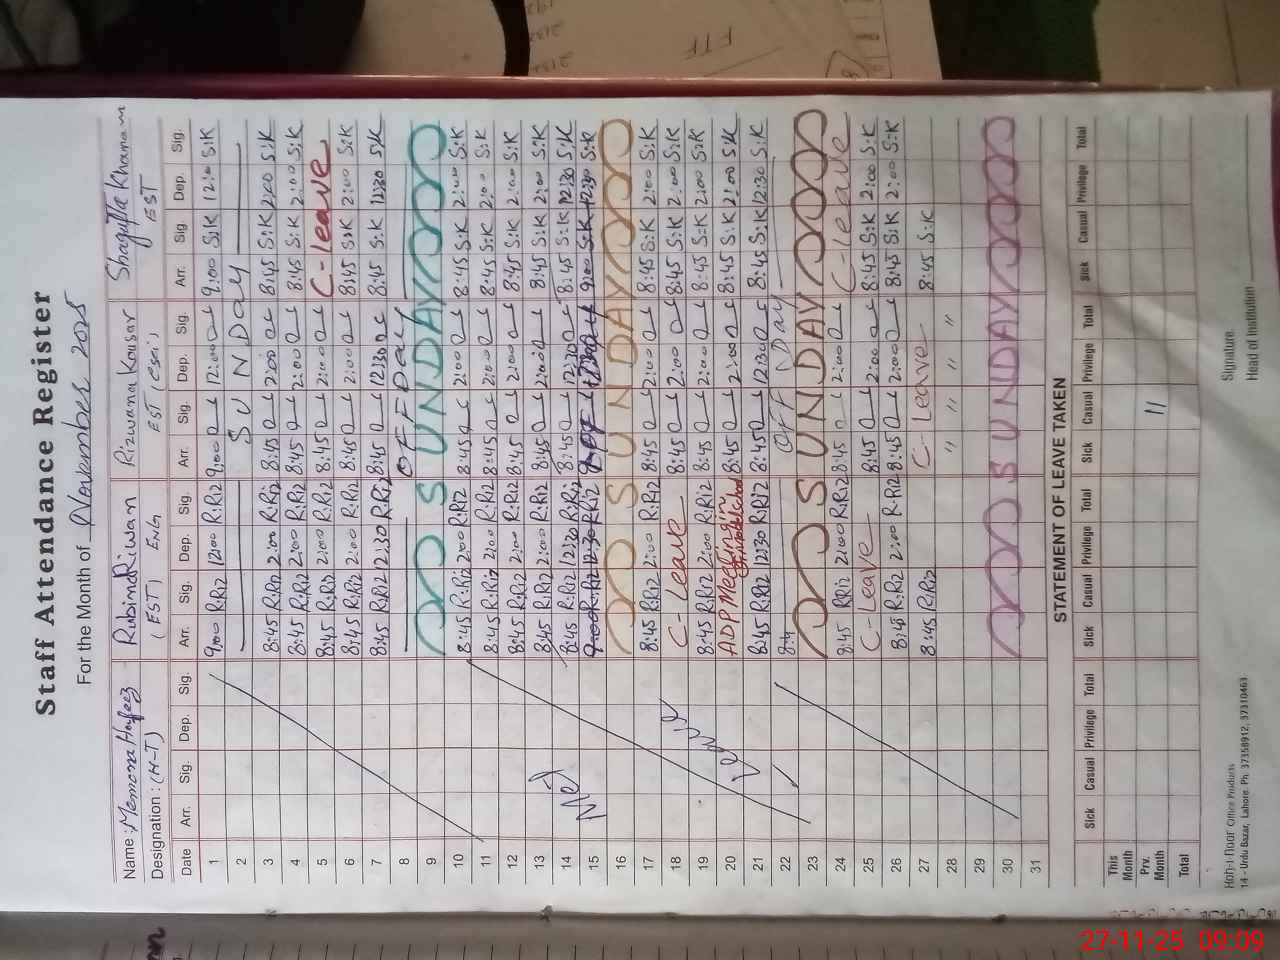 Staff Attendance Register
For the Month of November 2025
Name: Memona Hafeez Rubina Rizwan Rizwana Kousar Shagufta Khanam
Designation: (H-T) (EST) ENG EST (Sci) EST
Date Arr. Sig. Dep. Sig. Arr. Sig. Dep. Sig. Arr. Sig. Dep. Sig. Arr. Sig Dep. Sig.
1 9:00 R:Riz 12:00 R:Riz 9:00 12:00 9:00 S:K 12:00 S:K
2 SUNDay
3 8:45 R:Riz 2:00 R:Riz 8:45 2:00 8:45 S:K 2:00 S:K
4 8:45 R:Riz 2:00 R:Riz 8:45 2:00 8:45 S:K 2:00 S:K
5 8:45 R:Riz 2:00 R:Riz 8:45 2:00 C-leave
6 8:45 R:Riz 2:00 R:Riz 8:45 2:00 8:45 S:K 2:00 S:K
7 8:45 R:Riz 12:30 R:Riz 8:45 12:30 8:45 S:K 12:30 S:K
8 OFF Day
9 SUNDAY
10 8:45 R:Riz 2:00 R:Riz 8:45 2:00 8:45 S:K 2:00 S:K
11 8:45 R:Riz 2:00 R:Riz 8:45 2:00 8:45 S:K 2:00 S:K
12 8:45 R:Riz 2:00 R:Riz 8:45 2:00 8:45 S:K 2:00 S:K
13 8:45 R:Riz 2:00 R:Riz 8:45 2:00 8:45 S:K 2:00 S:K
14 8:45 R:Riz 12:30 R:Riz 8:45 12:30 8:45 S:K 12:30 S:K
15 9:00 R:Riz 12:30 R:Riz 9:00 S:K 12:30 S:K
16 SUNDAY
17 8:45 R:Riz 2:00 R:Riz 8:45 2:00 8:45 S:K 2:00 S:K
18 C-Leave 8:45 2:00 8:45 S:K 2:00 S:K
19 8:45 R:Riz 2:00 R:Riz 8:45 2:00 8:45 S:K 2:00 S:K
20 ADP Meeting in 8:45 2:00 8:45 S:K 2:00 S:K
21 8:45 R:Riz 12:30 R:Riz 8:45 12:30 8:45 S:K 12:30 S:K
22 8:4 OFF Day
23 SUNDAY
24 8:45 R:Riz 2:00 R:Riz 8:45 2:00 C-leave
25 C-Leave 8:45 2:00 8:45 S:K 2:00 S:K
26 8:45 R:Riz 2:00 R:Riz 8:45 2:00 8:45 S:K 2:00 S:K
27 8:45 R:Riz C-Leave 8:45 S:K
28 " " " "
29
30 SUNDAY
31
STATEMENT OF LEAVE TAKEN
Sick Casual Privilege Total Sick Casual Privilege Total Sick Casual Privilege Total Sick Casual Privilege Total
This Month
Prv. Month 11
Total
Office Products
14 - Urdu Bazar, Lahore. Ph: 37358912, 37310463
Signature
Head of Institution
27-11-25 09:09